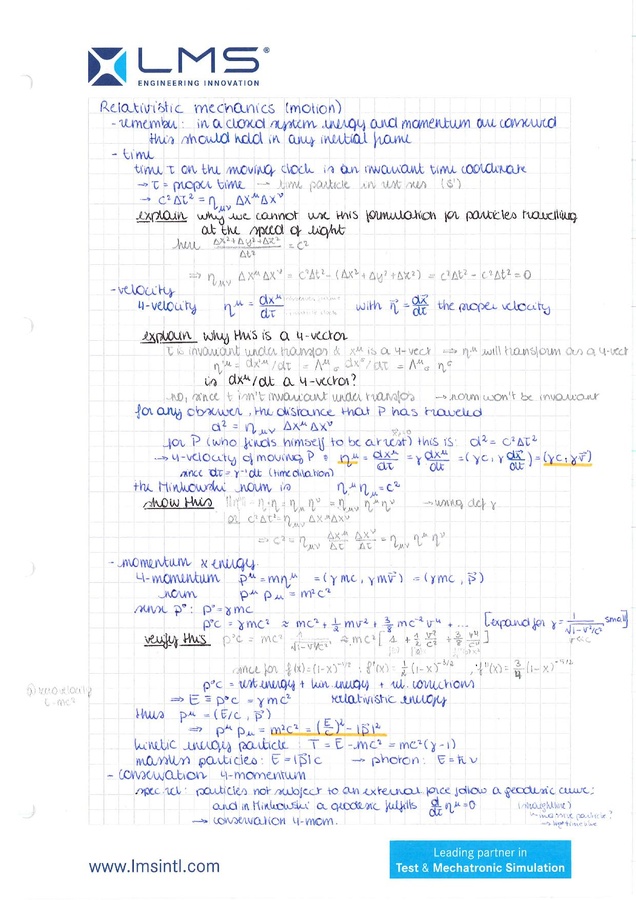 LMS®
ENGINEERING INNOVATION
Relativistic mechanics (motion)
- remember: in a closed system energy and momentum are conserved
this should hold in any inertial frame
- time
time τ on the moving clock is an invariant time coordinate
→ τ = proper time → time particle in rest
→ c²Δτ² = η_μν Δx^μ Δx^ν
explain why we cannot use this formulation for particles travelling
at the speed of light
here (Δx²+Δy²+Δz²)/Δt² = c²
⇒ η_μν Δx^μ Δx^ν = c²Δt² - (Δx²+Δy²+Δz²) = c²Δt² - c²Δt² = 0
- velocity
4-velocity η^μ = dx^μ/dτ with η⃗ = dx⃗/dτ the proper velocity
explain why this is a 4-vector
τ is invariant under transfos & x^μ is a 4-vect ⇒ η^μ will transform as a 4-vect
η'^μ = dx'^μ/dτ = Λ^μ_σ dx^σ/dτ = Λ^μ_σ η^σ
is dx^μ/dt a 4-vector?
no, since t isn't invariant under transfos → norm won't be invariant
for any observer, the distance that P has traveled
d² = η_μν Δx^μ Δx^ν
for P (who finds himself to be at rest) this is: d² = c²Δτ²
→ 4-velocity of moving P: η^μ = dx^μ/dτ = γ dx^μ/dt = (γc, γ dx⃗/dt) = (γc, γv⃗)
since dτ = γ⁻¹dt (time dilation)
the Minkowski norm is η^μ η_μ = c²
show this η·η = η_μ η^μ = η_μν η^μ η^ν → using def γ
or c²Δτ² = η_μν Δx^μ Δx^ν
⇒ c² = η_μν Δx^μ/Δτ Δx^ν/Δτ = η_μν η^μ η^ν
- momentum & energy
4-momentum p^μ = mη^μ = (γmc, γmv⃗) = (γmc, p⃗)
norm p^μ p_μ = m²c²
since p⁰: p⁰ = γmc
p⁰c = γmc² ≈ mc² + 1/2 mv² + 3/8 mc⁻² v⁴ + ... [expand for γ = 1/√(1-v²/c²) small]
verify this p⁰c = mc² 1/√(1-v²/c²) ≈ mc² [1 + 1/2 v²/c² + 3/8 v⁴/c⁴]
since for f(x) = (1-x)^-1/2 : f'(x) = 1/2 (1-x)^-3/2 , f''(x) = 3/4 (1-x)^-5/2
p⁰c = rest energy + kin. energy + rel. corrections
E = mc²
⇒ E ≡ p⁰c = γmc² relativistic energy
thus p^μ = (E/c, p⃗)
⇒ p^μ p_μ = m²c² = (E/c)² - |p⃗|²
kinetic energy particle: T = E - mc² = mc²(γ-1)
massless particles: E = |p⃗|c → photon: E = hν
- conservation 4-momentum
spec.rel: particles not subject to an external force follow a geodesic curve;
and in Minkowski a geodesic fulfills d/dτ η^μ = 0 (straight line)
→ massive particle?
→ conservation 4-mom.
www.lmsintl.com
Leading partner in
Test & Mechatronic Simulation